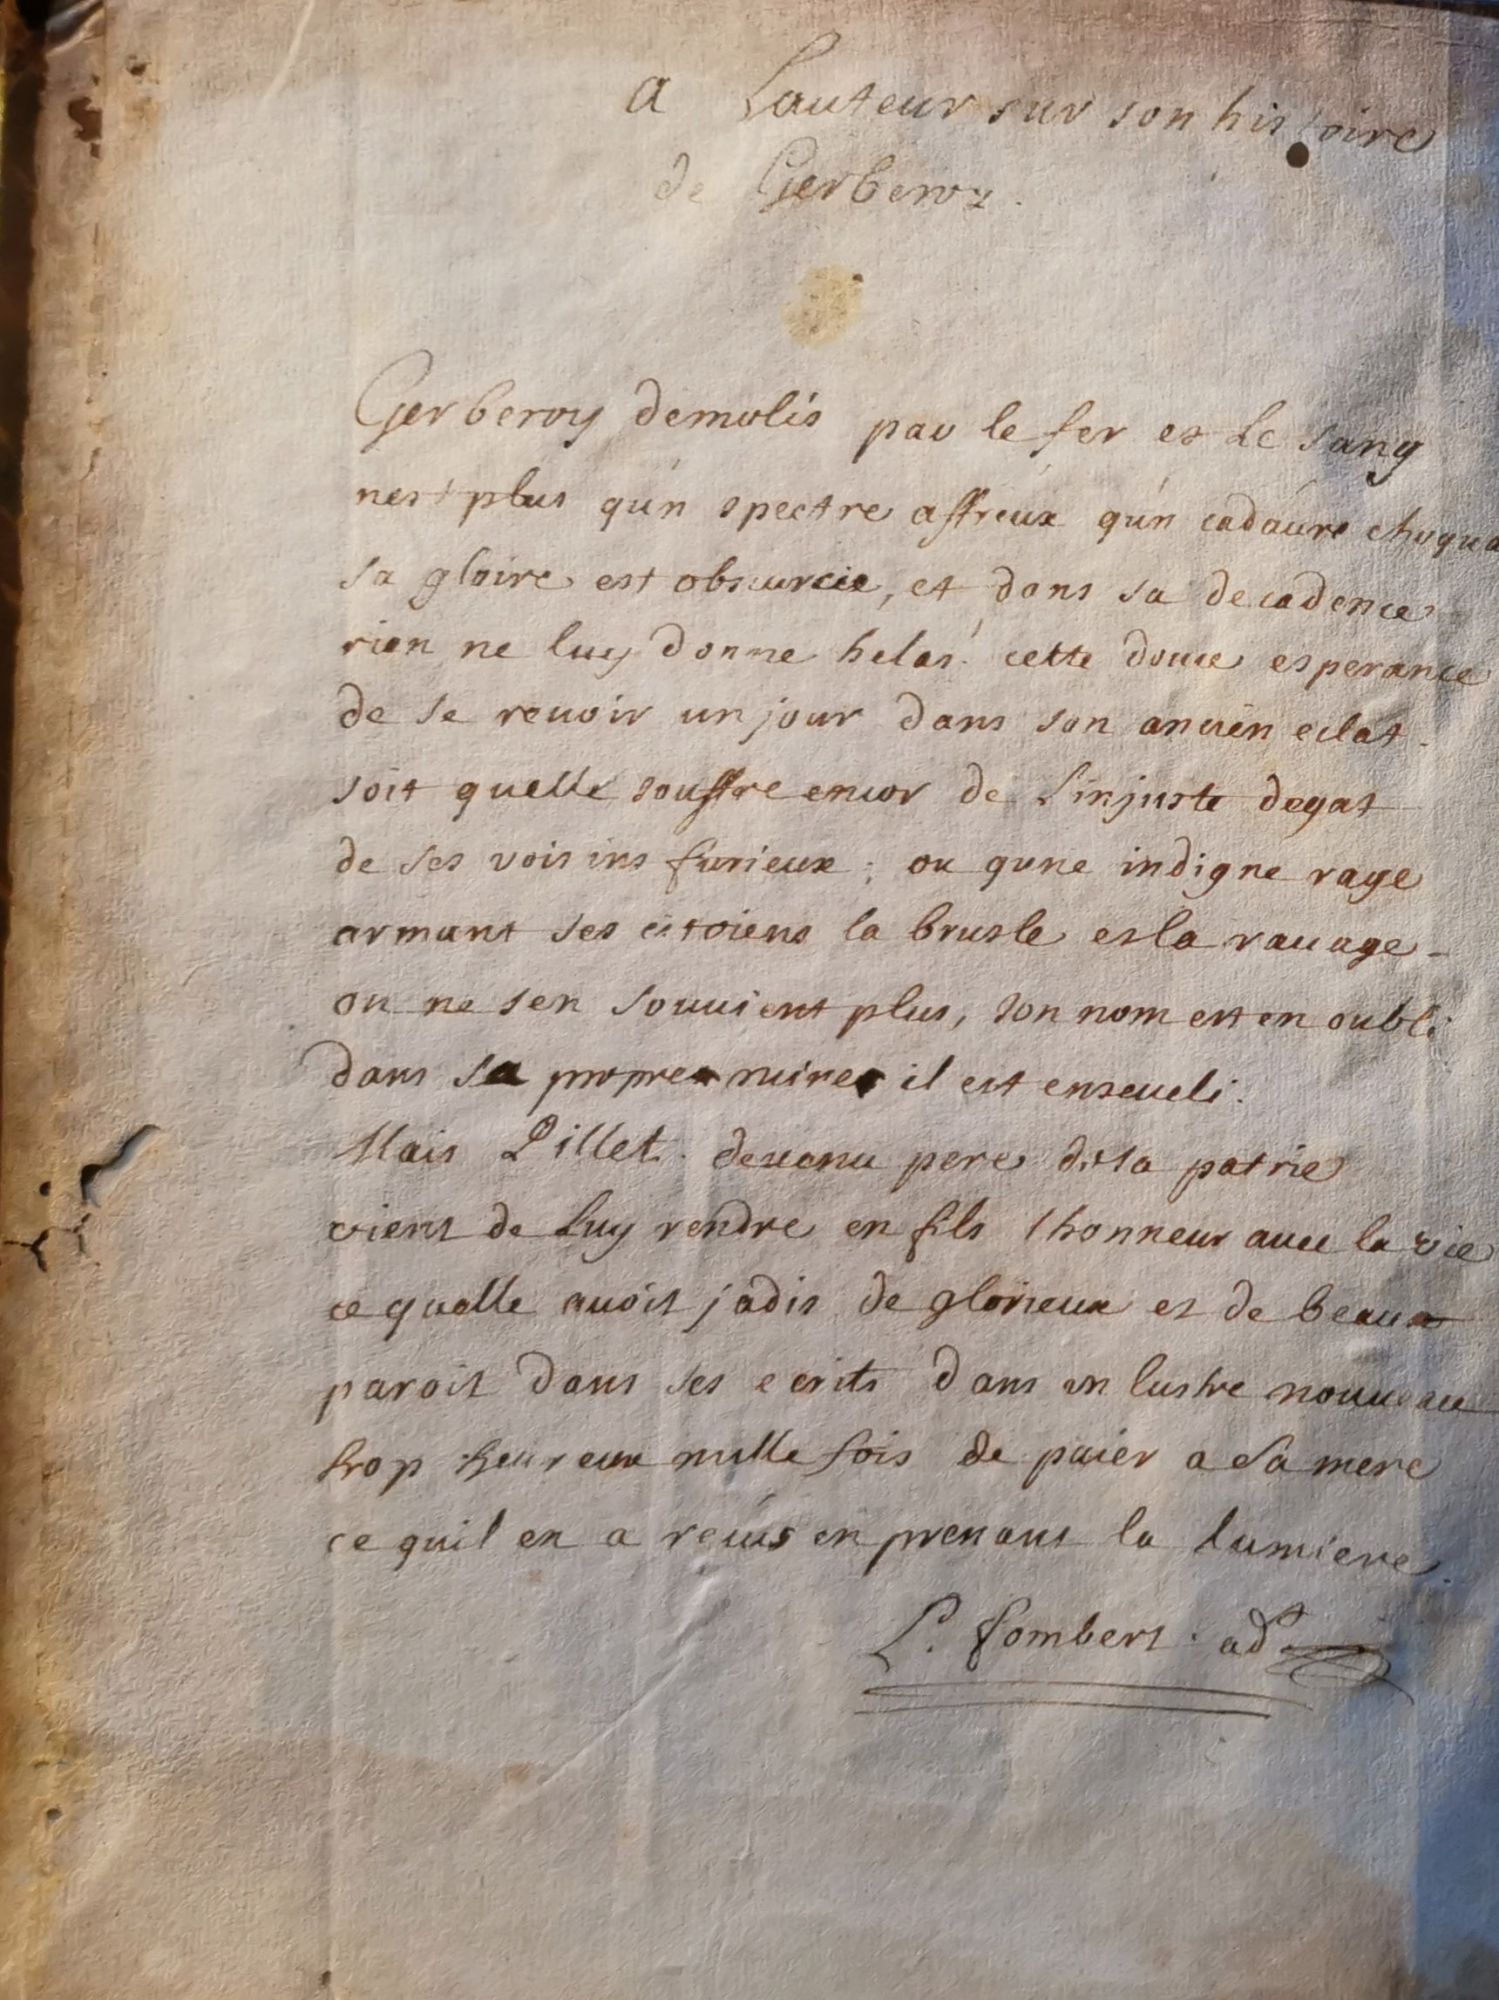 a Lauteur sur son histoire
de Gerberoy.
Gerberoy demolis par le fer et Le sang
nest plus qu'n spectre affreux qu'n cadaure choqua
sa gloire est obscurcie, et dans sa decadence
rien ne luy donne helas! cette douce esperance
de se reuoir un jour dans son ancien eclat.
soit quelle souffre encor de L'injuste degat
de ses voisins furieux; ou qune indigne rage
armant ses citoiens la brusle et la rauage
on ne sen souuient plus, son nom est en oubli
dans sa propre ruine il est enseueli.
Mais Pillet. deuenu pere de sa patrie
vient de Luy rendre en fils lhonneur auec la vie
ce quelle auoit jadis de glorieux et de beau
paroit dans ses ecrits dans un lustre nouueau
trop heureux mille fois de paier a Sa mere
ce quil en a recus en prenant la lumiere.
L. fombert. ad